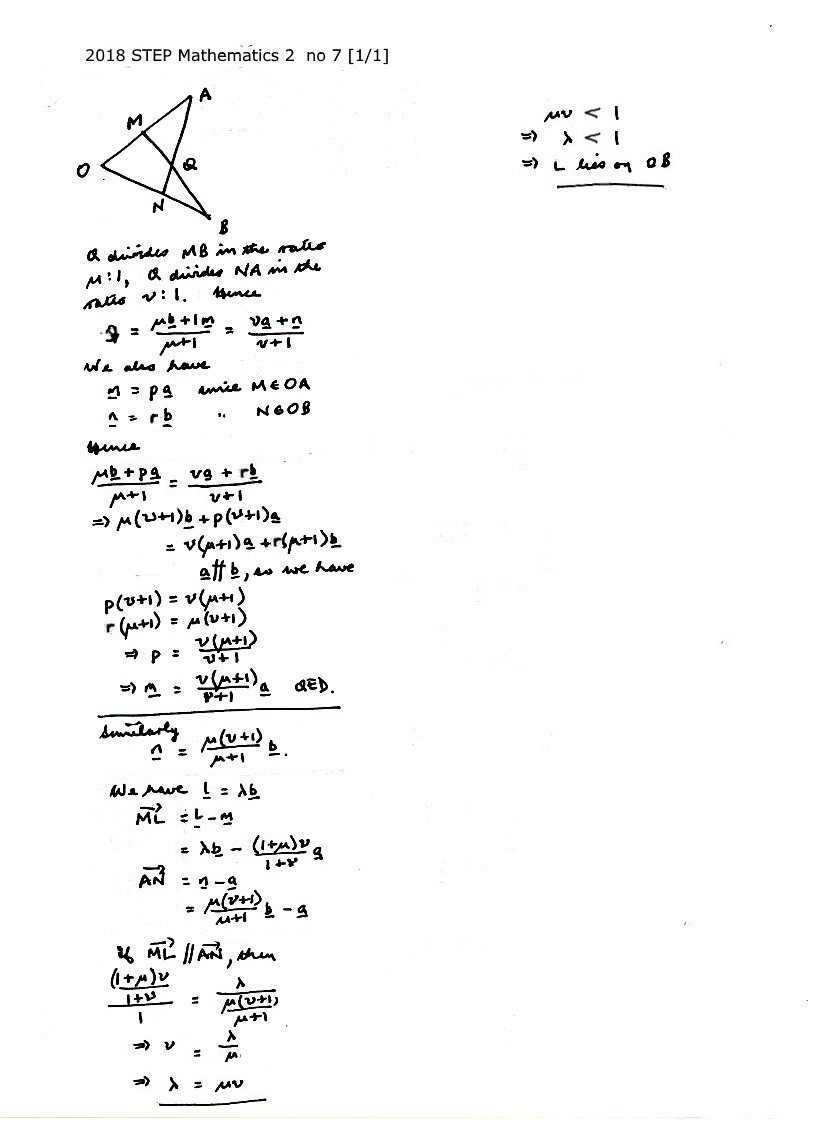 2018 STEP Mathematics 2 no 7 [1/1]
A
M
O
Q
N
B
Q divides MB in the ratio
μ:1, Q divides NA in the
ratio ν:1. Hence
q = (μb + 1m)/(μ+1) = (νa + n)/(ν+1)
We also have
m = pa since M∈OA
n = rb " N∈OB
Hence
(μb + pa)/(μ+1) = (νa + rb)/(ν+1)
⇒ μ(ν+1)b + p(ν+1)a
= ν(μ+1)a + r(μ+1)b
a∦b, so we have
p(ν+1) = ν(μ+1)
r(μ+1) = μ(ν+1)
⇒ p = ν(μ+1)/(ν+1)
⇒ m = ν(μ+1)/(ν+1) a QED.
Similarly
n = μ(ν+1)/(μ+1) b.
We have L = λb
ML = L - m
= λb - (1+μ)ν/(1+ν) a
AN = n - a
= μ(ν+1)/(μ+1) b - a
If ML // AN, then
((1+μ)ν/(1+ν))/1 = λ/(μ(ν+1)/(μ+1))
⇒ ν = λ/μ
⇒ λ = μν
μν < 1
⇒ λ < 1
⇒ L lies on OB